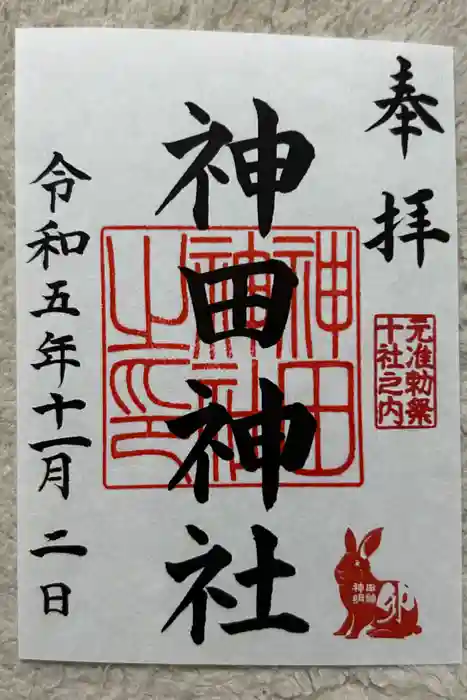 奉拝
元准勅祭
十社之内
神田神社
神田
神社
之印
令和五年十一月二日
神田
明神
卯